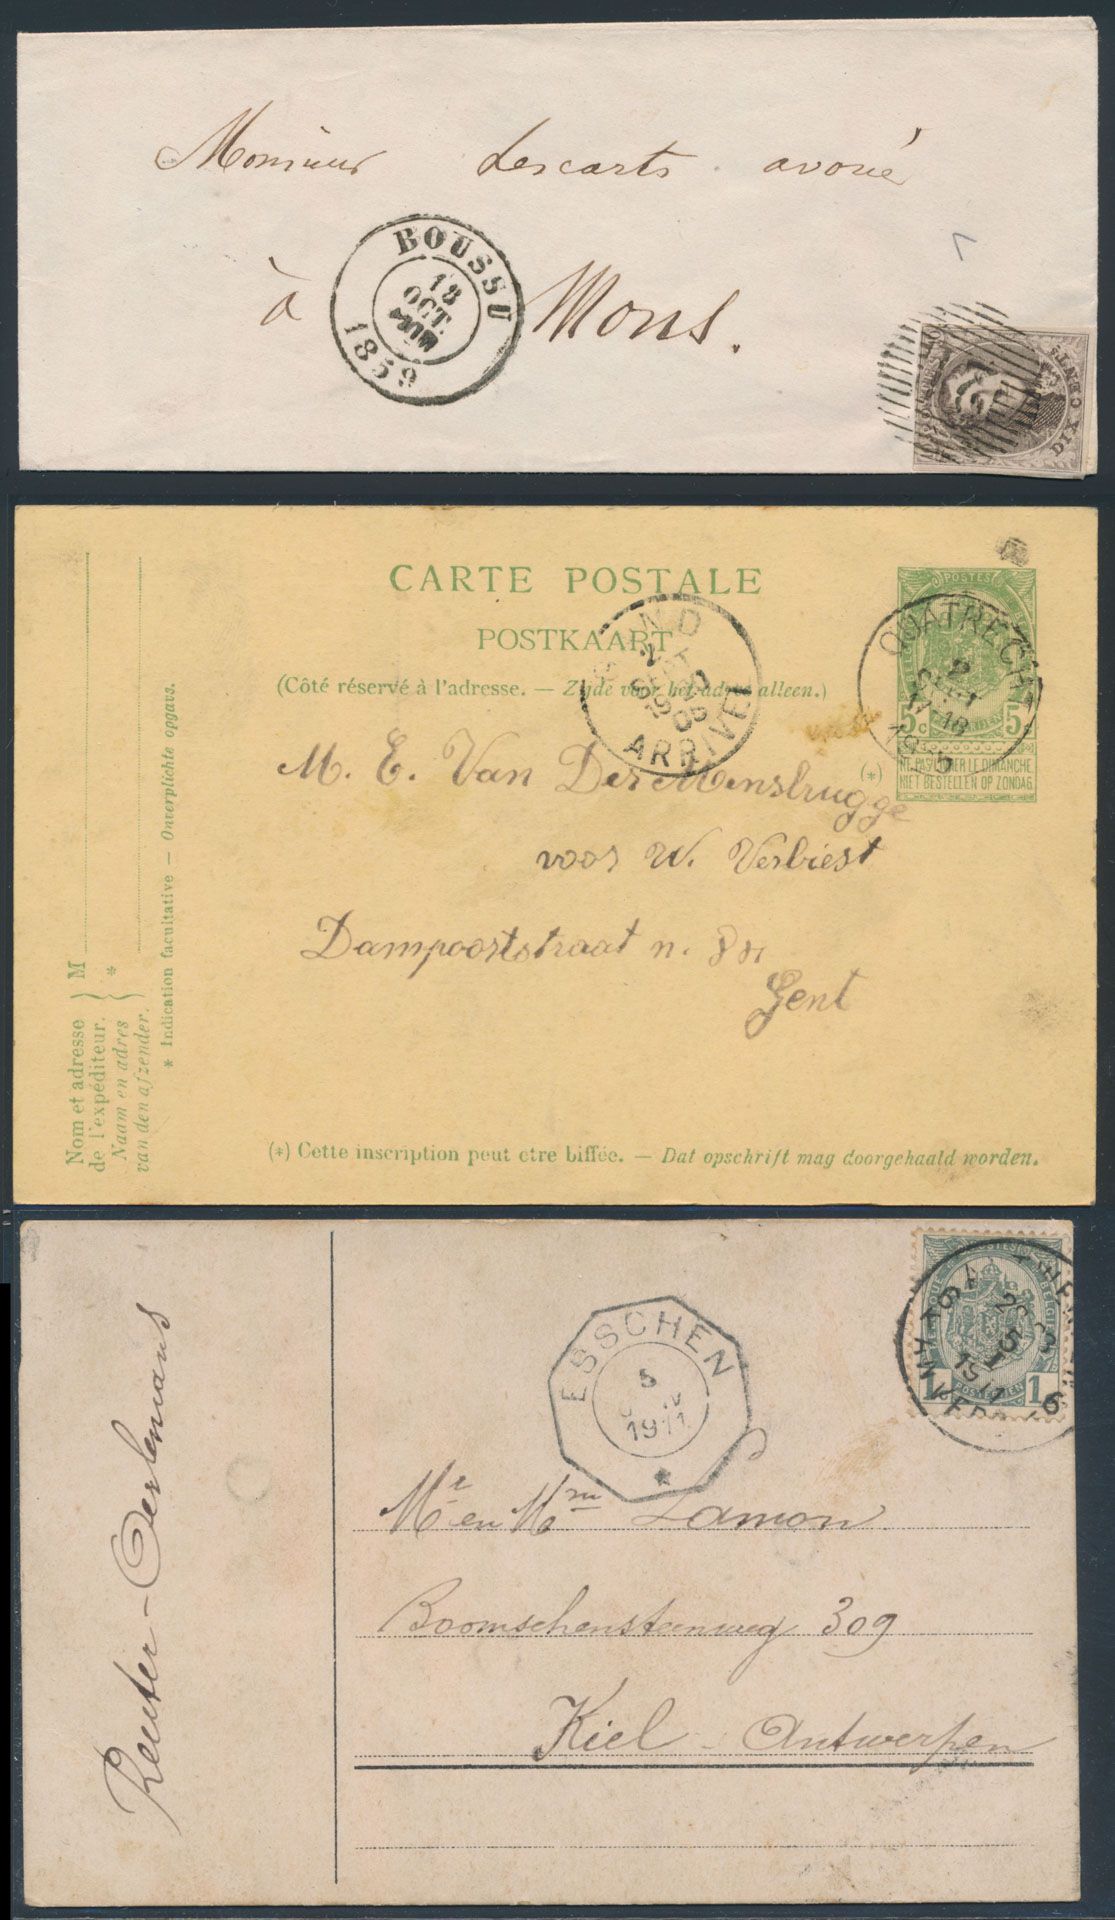 Monsieur Descarts avoué
à Mons.
BOUSSU
18
OCT.
1859
DIX CENTS
CARTE POSTALE
POSTKAART
(Côté réservé à l'adresse. — Zijde voor het adres alleen.)
GAND
1905
ARRIVÉE
QUATRECHT
2
POSTES
5c 5c
NE PAS LIVRER LE DIMANCHE
NIET BESTELLEN OP ZONDAG
(*)
M. E. Van Der Mensbrugge
voor W. Verbiest
Dampoortstraat n.
Gent
Nom et adresse de l'expéditeur. } M
Naam en adres van den afzender. } *
* Indication facultative — Onverplichte opgave.
(*) Cette inscription peut etre biffée. — Dat opschrift mag doorgehaald worden.
Reuter-Oerlemans
ESSCHEN
5
1911
*
POSTES
BELGIQUE
1 1
POSTERIJEN
ANTWERPEN
5
1911
6
Mr en Mme Lamon
Boomschensteenweg 309
Kiel - Antwerpen